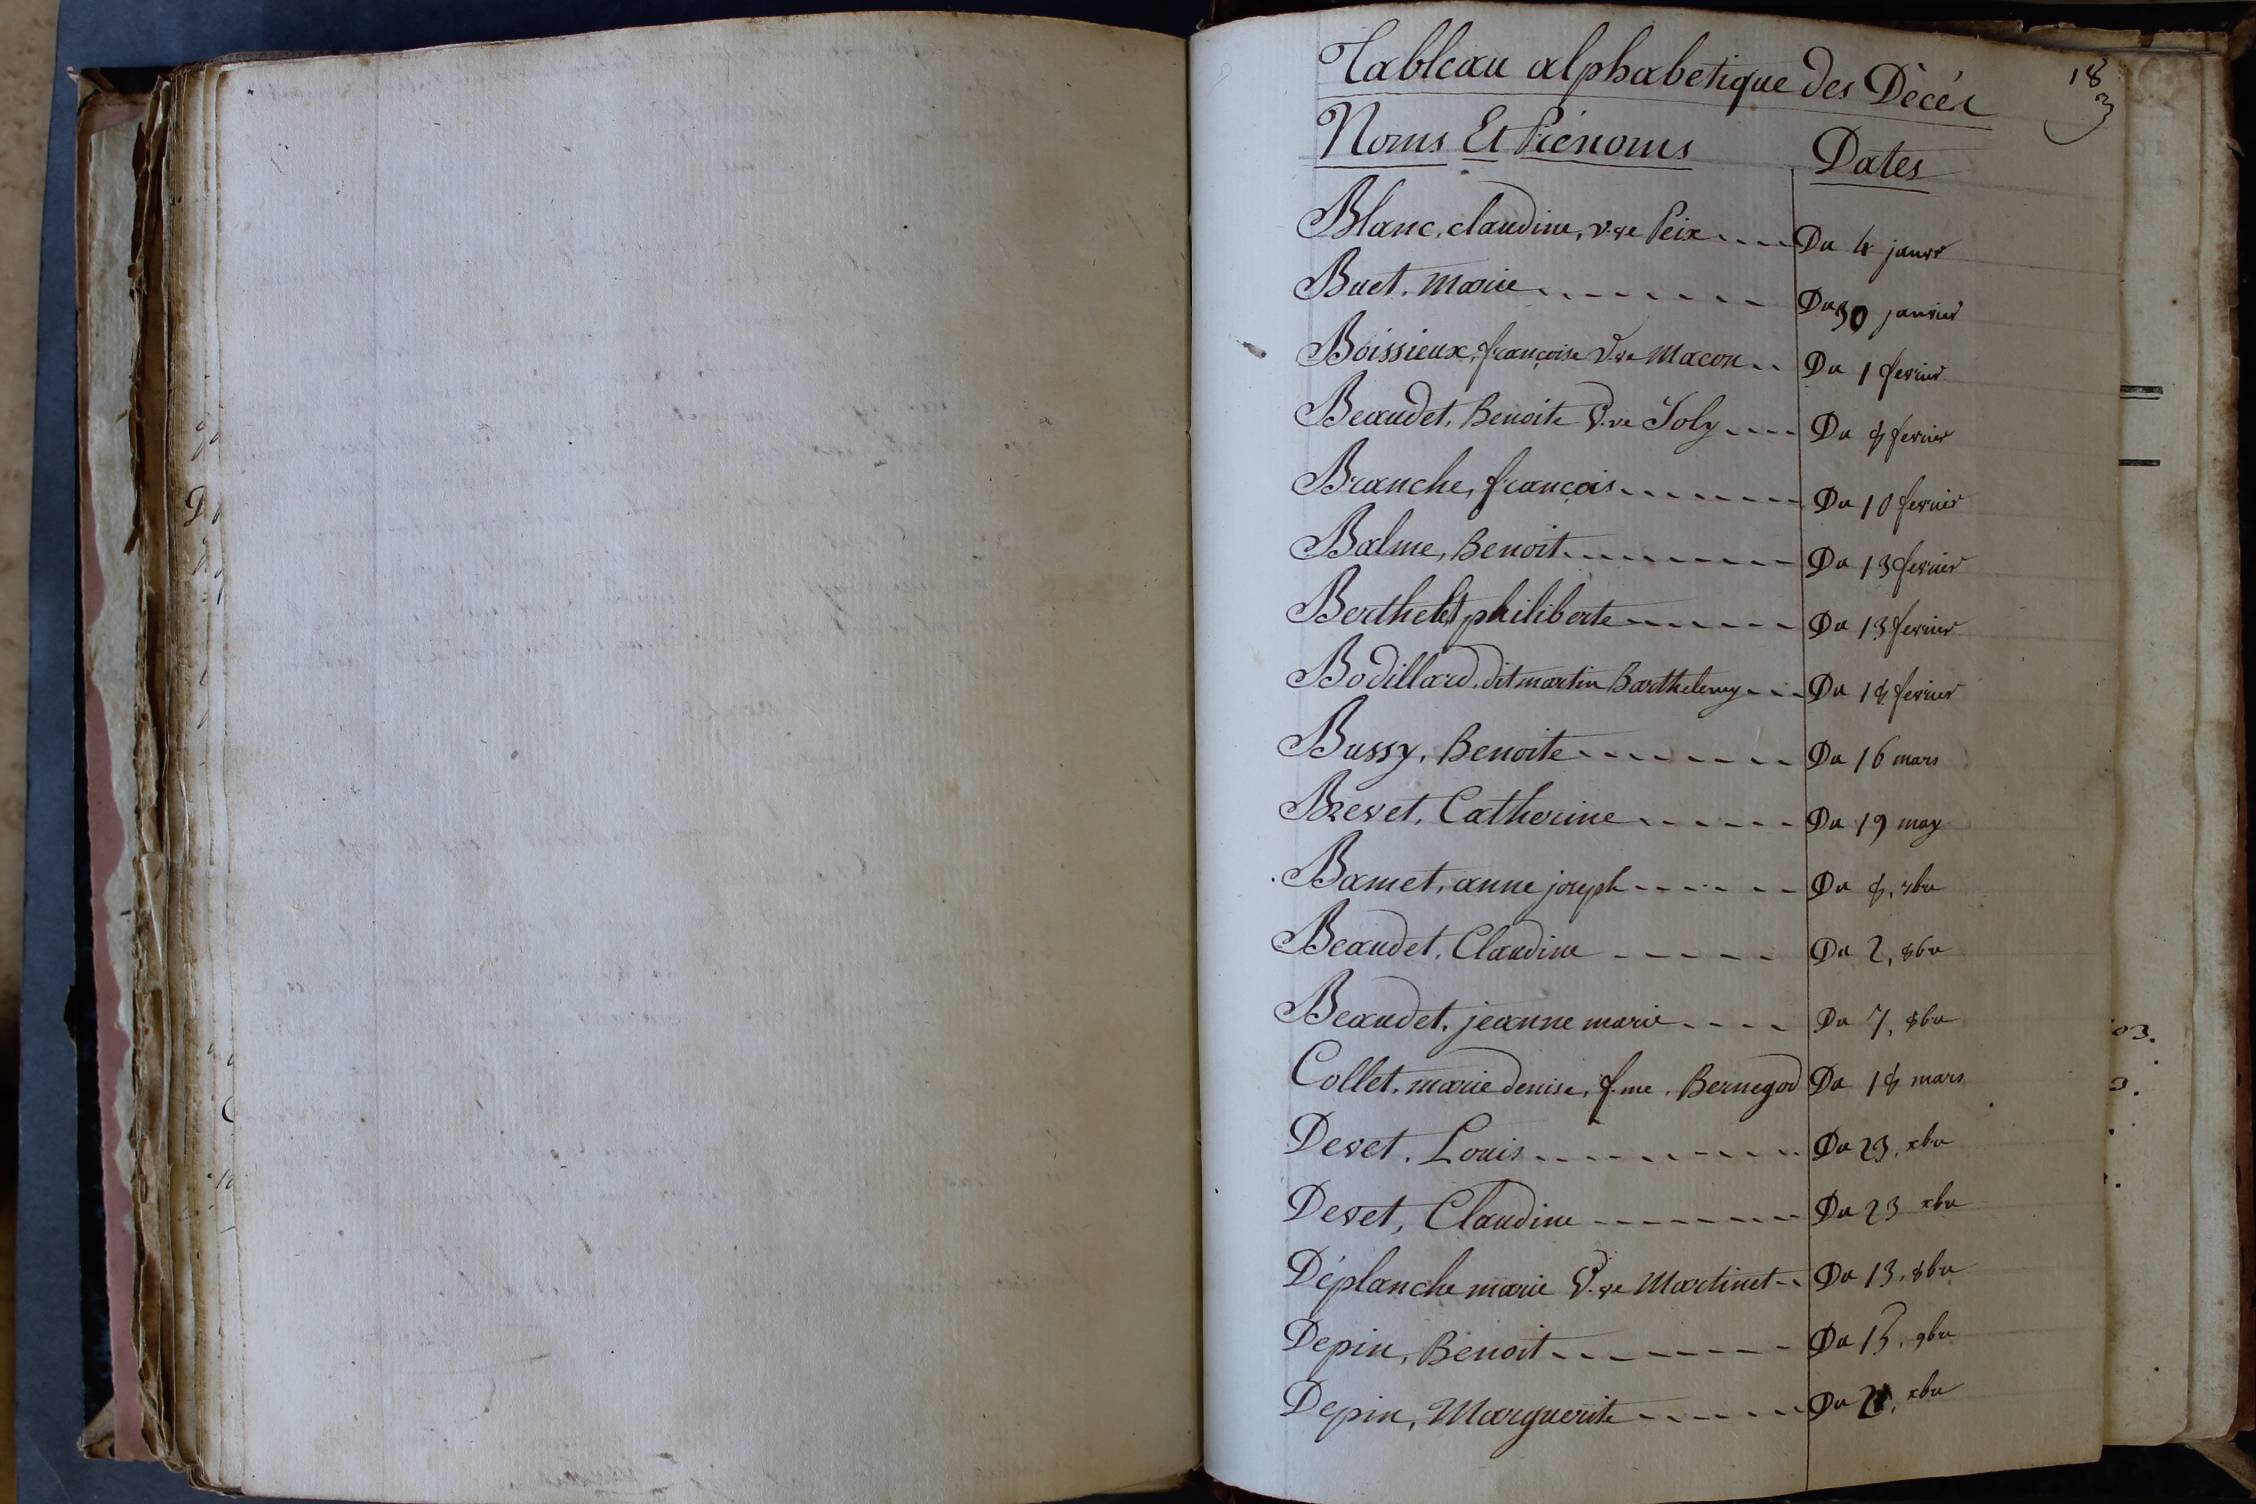 18
3
Tableau alphabetique des Décés
Noms Et Prénoms Dates
Blanc, claudine, v.ve Peix .... Du 4 janvr
Buet. Marie ........ Du 30 janvier
Boissieux, françoise V.ve Macon .. Du 1 fevrier
Beaudet, Benoite V.ve Joly .... Du 8 fevrier
Branche, françois ....... Du 10 fevrier
Balme, Benoit ........ Du 13 fevrier
Berthelet philiberte ...... Du 13 fevrier
Bodillard, dit martin Barthelemy ... Du 18 fevrier
Bussy, Benoite ........ Du 16 mars
Brevet, Catherine ...... Du 19 may
Bamet, anne joseph ...... Du 8, 7bre
Beaudet, Claudine ..... Du 2, 8bre
Beaudet, jeanne marie .... Du 7, 8bre
Collet, marie denise, f.me, Bernegod Du 18 mars
Devet, Louis ......... Du 23, xbre
Devet, Claudine ....... Du 23 xbre
Déplanche marie V.ve Martinet .. Du 13, 8bre
Depin, Benoit ....... Du 15, 9bre
Depin, Marguerite ...... Du xbre